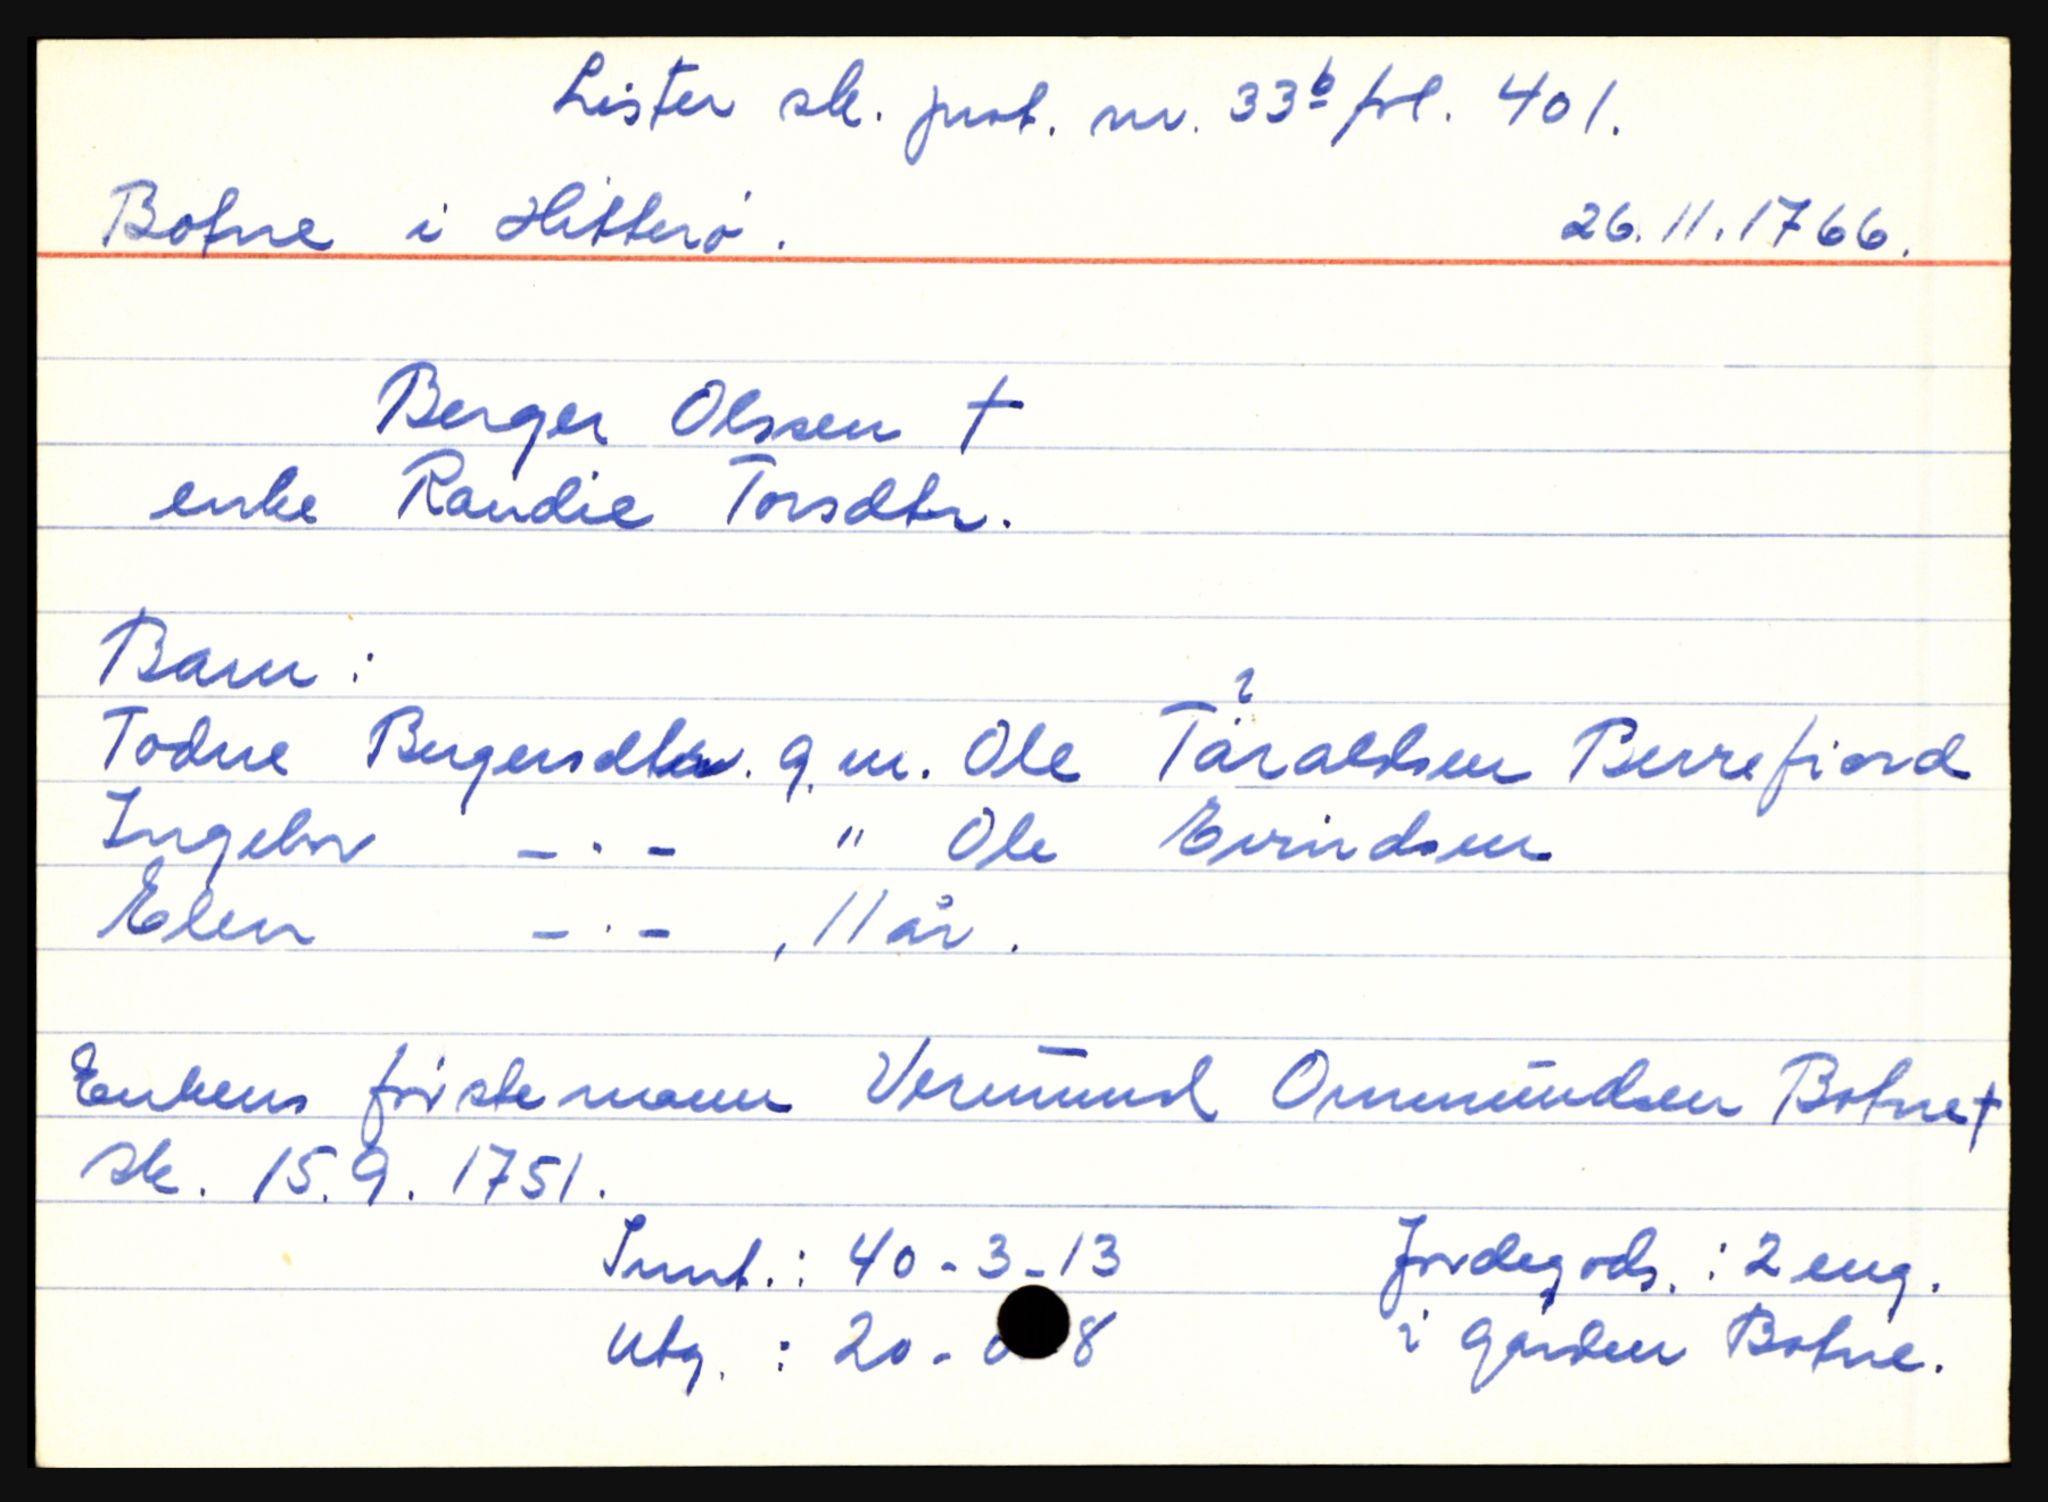 Lister sk. prot. nr. 33b fol. 401.
Botne i Hitterø. 26.11.1766.
Berger Olssen †
enke Randie Torsdtr.
Barn:
?
Todne Bergersdtr. g.m. Ole Tåraldsen Berrefiord
Ingebor -·- " Ole Evindsen
Elen -·- , 11 år.
Enkens første mann Vermund Ommundsen Botne †
sk. 15.9.1751.
Innt.: 40-3-13 Jordegods.: 2 eng.
Utg.: 20-0 8 i gården Botne.